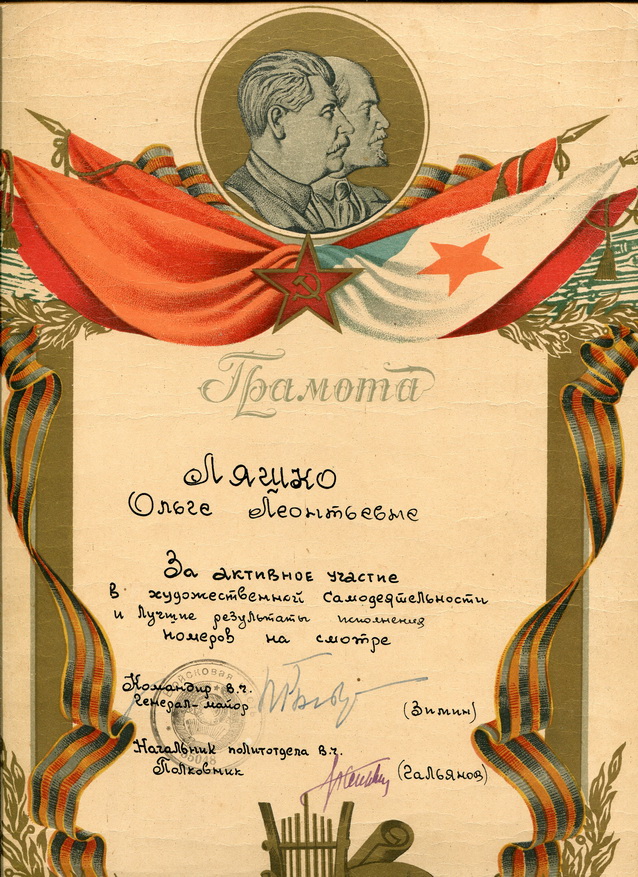 Грамота
Ляшко
Ольге Леонтьевне
За активное участие
в художественной самодеятельности
и лучшие результаты исполнения
номеров на смотре
Командир в.ч.
Генерал-майор
(Зимин)
Начальник политотдела в.ч.
Полковник
(Гальянов)